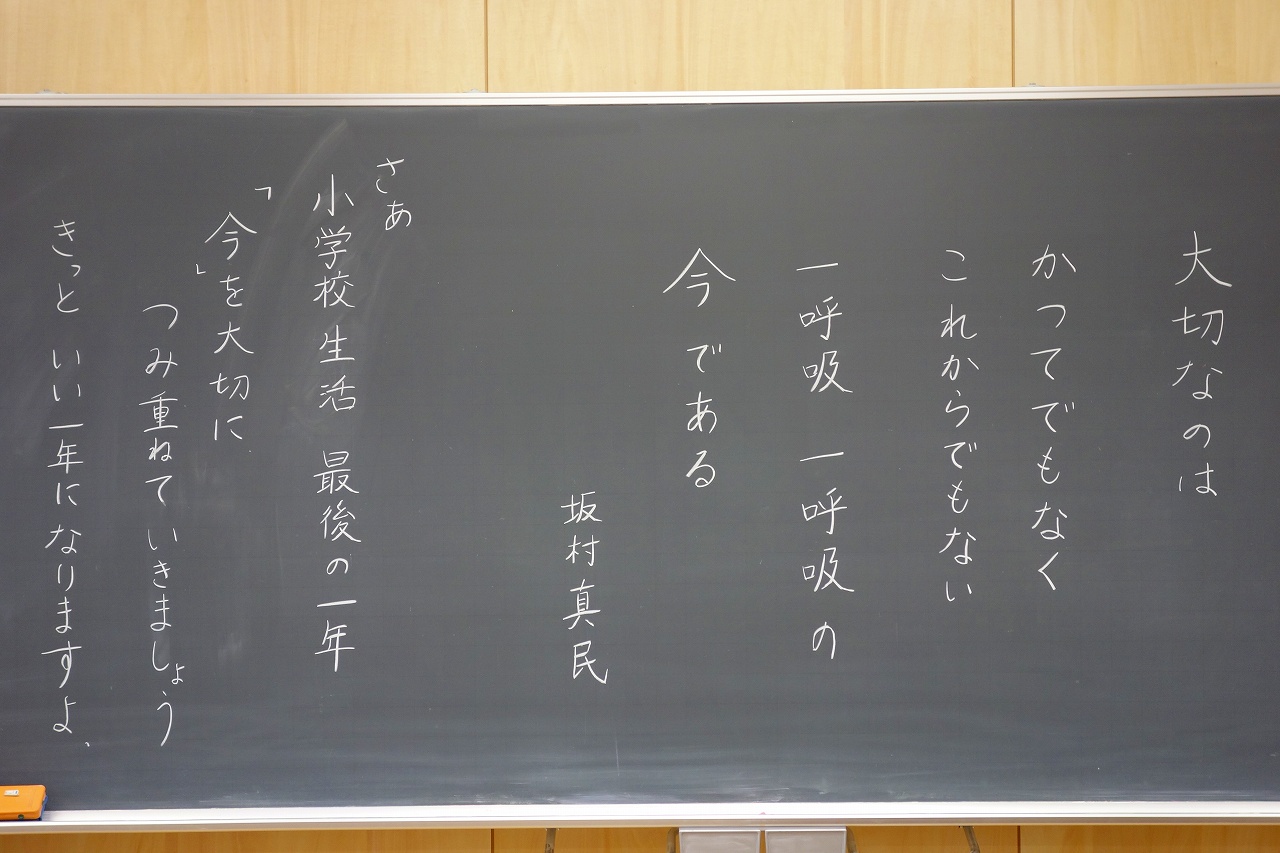 大切なのは
かつてでもなく
これからでもない
一呼吸 一呼吸の
今である
坂村真民
さぁ
小学校生活 最後の一年
「今」を大切に
つみ重ねていきましょう
きっと いい一年になりますよ、